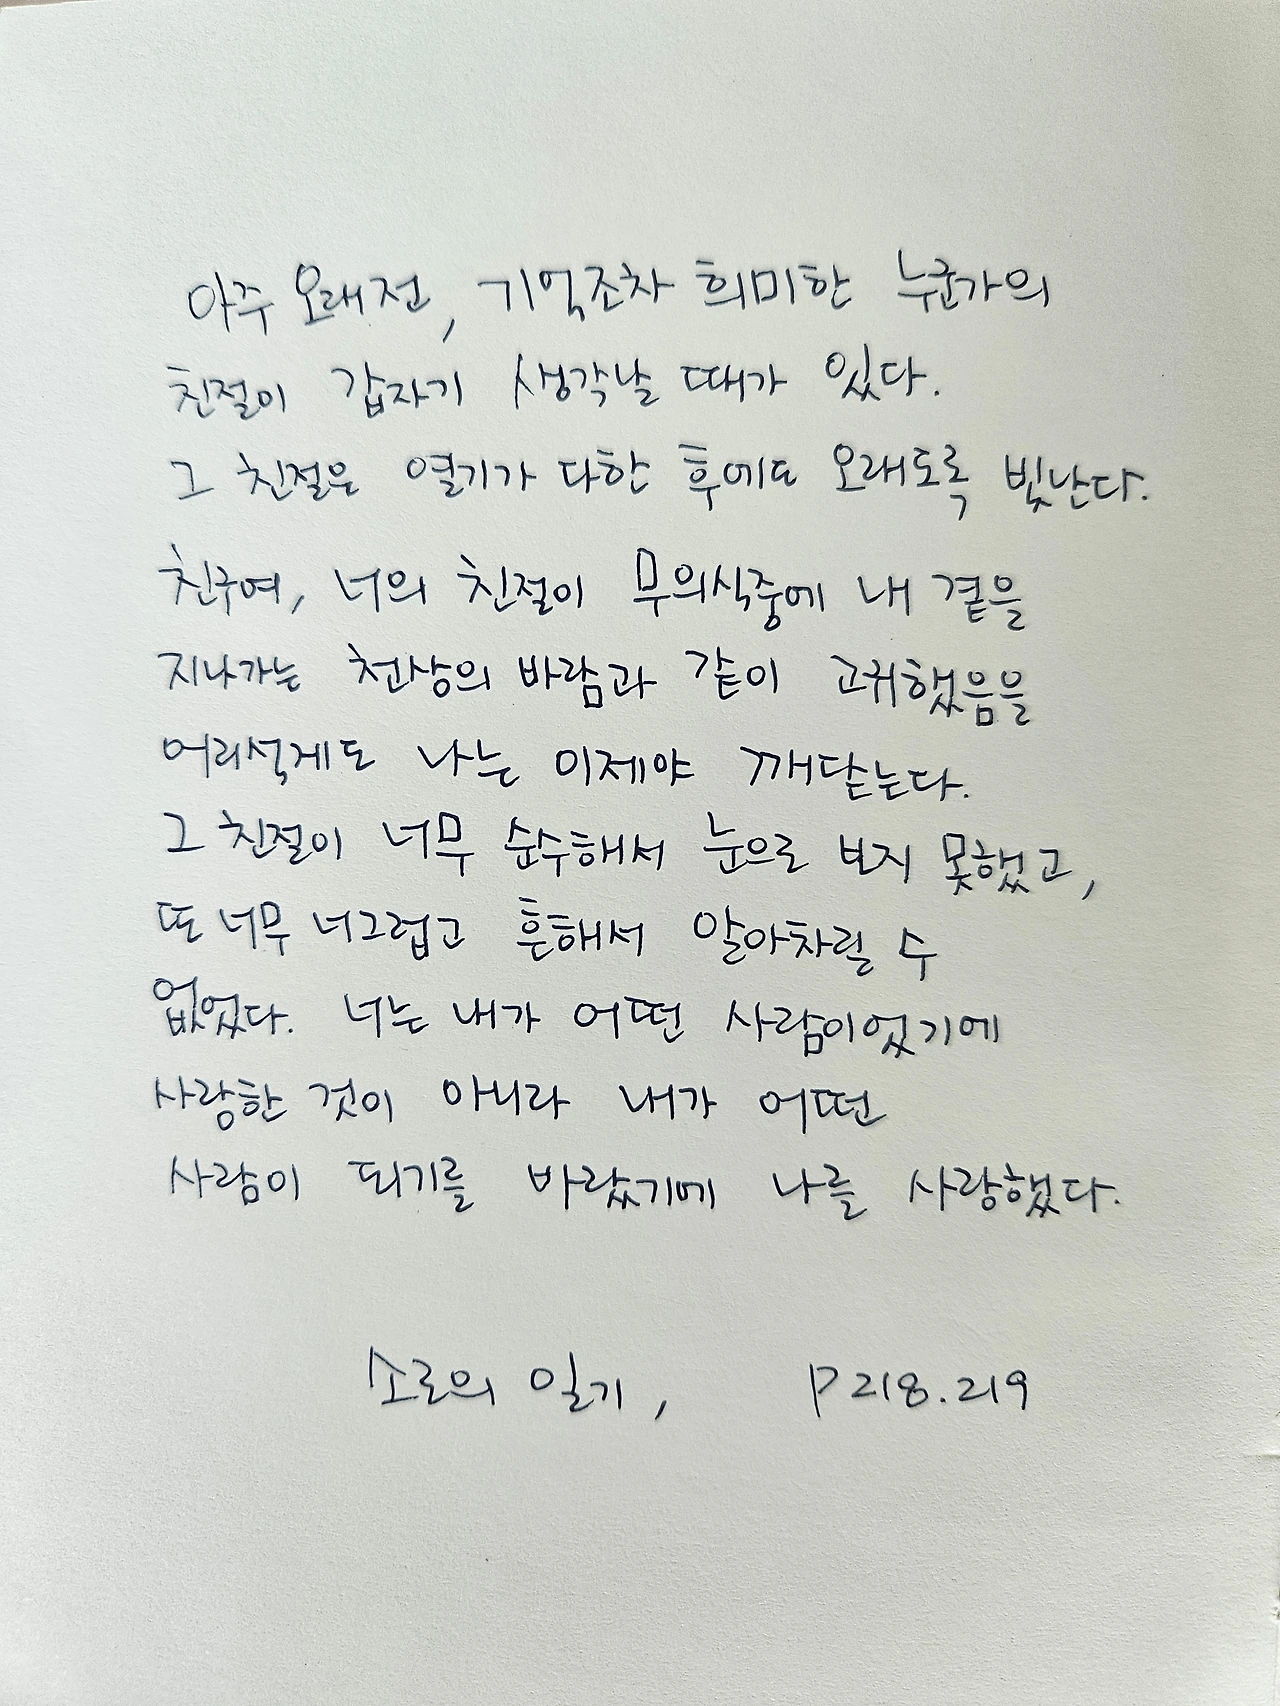 아주 오래전, 기억조차 희미한 누군가의
친절이 갑자기 생각날 때가 있다.
그 친절은 열기가 다한 후에도 오래도록 빛난다.
친구여, 너의 친절이 무의식중에 내 곁을
지나가는 천상의 바람과 같이 고귀했음을
어리석게도 나는 이제야 깨닫는다.
그 친절이 너무 순수해서 눈으로 보지 못했고,
또 너무 너그럽고 흔해서 알아차릴 수
없었다. 너는 내가 어떤 사람이었기에
사랑한 것이 아니라 내가 어떤
사람이 되기를 바랐기에 나를 사랑했다.
소로의 일기, P 218.219